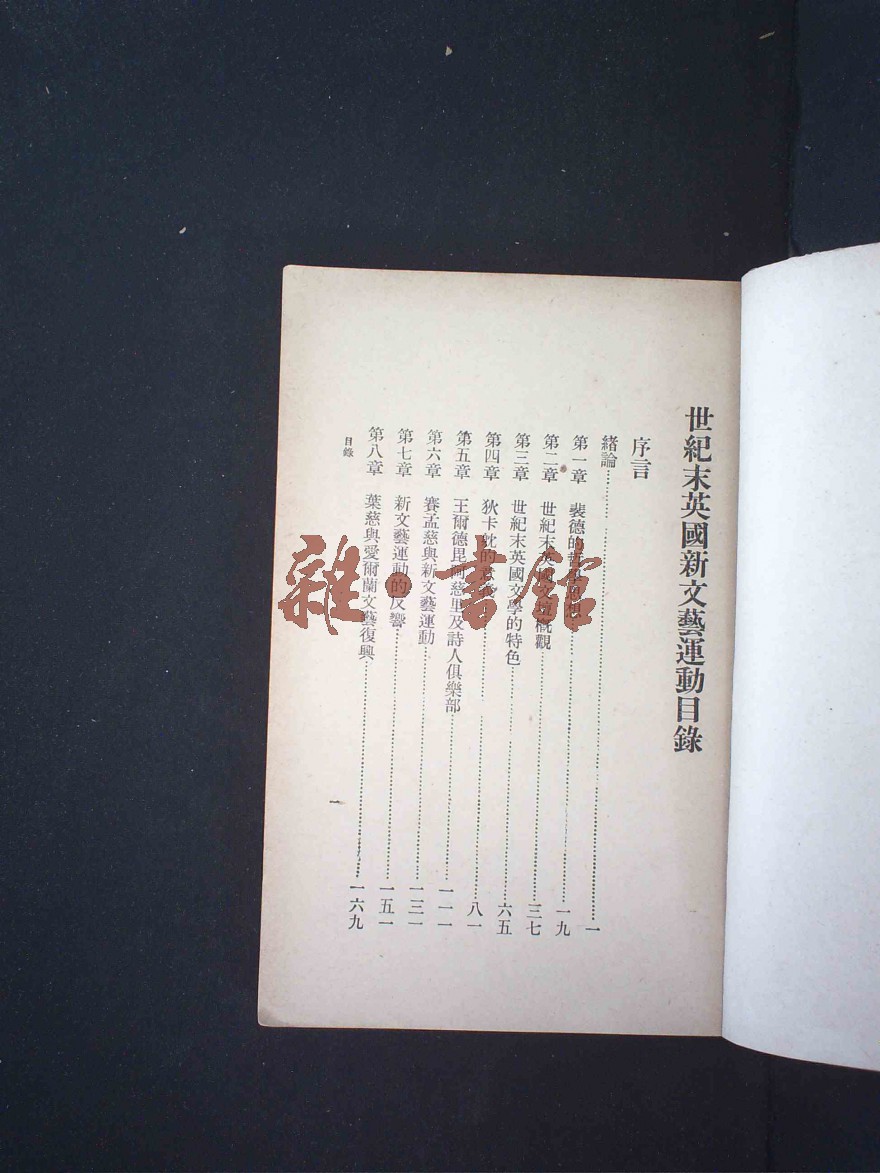 世紀末英國新文藝運動目錄
序言
緒論 一
第一章 裴德的哲學思想 一九
第二章 世紀末英國文壇概觀 三七
第三章 世紀末英國文學的特色 六五
第四章 狄卡耽的意義 八一
第五章 王爾德毘阿慈里及詩人俱樂部 一一一
第六章 賽孟慈與新文藝運動 一三一
第七章 新文藝運動的反響 一五一
第八章 葉慈與愛爾蘭文藝復興 一六九
目錄
一
雜·書館